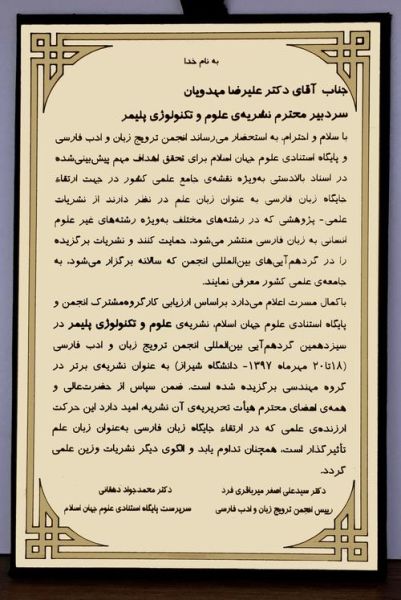 به نام خدا
جناب آقای دکتر علیرضا مهدویان
سردبیر محترم نشریه‌ی علوم و تکنولوژی پلیمر
با سلام و احترام، به استحضار می‌رساند انجمن ترویج زبان و ادب فارسی
و پایگاه استنادی علوم جهان اسلام برای تحقق اهداف مهم پیش‌بینی‌شده
در اسناد بالادستی به‌ویژه نقشه‌ی جامع علمی کشور در جهت ارتقاء
جایگاه زبان فارسی به عنوان زبان علم در نظر دارند از نشریات
علمی- پژوهشی که در رشته‌های مختلف به‌ویژه رشته‌های غیر علوم
انسانی به زبان فارسی منتشر می‌شود، حمایت کنند و نشریات برگزیده
را در گردهم‌آیی‌های بین‌المللی انجمن که سالانه برگزار می‌شود، به
جامعه‌ی علمی کشور معرفی نمایند.
باکمال مسرت اعلام می‌دارد براساس ارزیابی کارگروه‌مشترک انجمن و
پایگاه استنادی علوم جهان اسلام، نشریه‌ی علوم و تکنولوژی پلیمر در
سیزدهمین گردهم‌آیی بین‌المللی انجمن ترویج زبان و ادب فارسی
(۱۸تا۲۰ مهرماه ۱۳۹۷- دانشگاه شیراز) به عنوان نشریه‌ی برتر در
گروه مهندسی برگزیده شده است. ضمن سپاس از حضرت‌عالی و
همه‌ی اعضای محترم هیأت تحریریه‌ی آن نشریه، امید دارد این حرکت
ارزنده‌ی علمی که در ارتقاء جایگاه زبان فارسی به‌عنوان زبان علم
تأثیرگذار است، همچنان تداوم یابد و الگوی دیگر نشریات وزین علمی
گردد.
دکتر سیدعلی اصغر میرباقری فرد
دکتر محمدجواد دهقانی
رییس انجمن ترویج زبان و ادب فارسی
سرپرست پایگاه استنادی علوم جهان اسلام